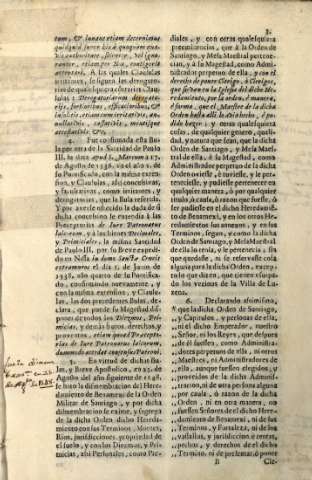 tum, & inanes etiam decernimus
quidquid
autoritate, scienter, vel igno-
ranter, etiam per Nos, contigerit
attentari. A las quales Clausulas
irritantes, se siguen las derogato-
rias de qualesquiera contrarias Clau-
sulas: Derogatoriarum derogato-
rijs, fortioribus, efficacioribus, &
insolitis, etiam cum irritativis, an-
nullativis, cassativis,
&c.
4. Fue confirmada esta Bu-
la por otra de la Santidad de Paulo
III. su data apud S. Marcum à 17.
de Agosto de 1538. en el año 4. de
su Pontificado, con la misma exten-
sion, y Clausulas, assi concessivas,
y facultativas, como irritantes, y de-
rogativas, que la Bula referida.
Y por averse ofrecido la duda de si
dicha concession se estendia à las
Preeminencias de Iure Patronatus
laicorum, y à los bienes Decimales,
y Primiciales, la misma Santidad
de Paulo III. por su Breve expedi-
do en
el dia 1. de Junio de
1538. año quarto de su Pontifica-
do, confirmando nuevamente, y
con la misma extension, y Clausu-
las, las dos precedentes Bulas, de-
clara, que puede su Magestad dispo-
ner de todos los Diezmos, Pri-
micias, y demàs bienes, derechos, y
proventos, etiam quoad Praecepto-
rias de Iure Patronatus laicorum,
dummodo accedat compensa Patroni.
5. En virtud de dichas Bu-
las, y Breve Apostolico, en 25. de
Agosto del año siguiente de 1548.
se hizo la desmembracion del Here-
damiento de Benamexi de la Orden
Militar de Santiago, y por dicha
dismembracion se eximiò, y segregò
de la dicha Orden dicho Hereda-
miento con sus Terminos, Montes,
Rios, jurisdicciones, propriedad de
el suelo de el, y Diezmos, y Pri-
micias, assi Personales, como Pre-
diales, y con otras qualesquiera
preeminencias, que à la Orden de
Santiago, y Mesa Maestral pertene-
cian, y à su Magestad, como Admi-
nistrador perpetuo de ella, y con el
derecho de poner Clerigo, ò Clerigos,
que sirvan en la Iglesia del dicho He-
redamiento, por la orden, è manera,
è forma, que el Maestre de la dicha
Orden hasta alli le ha hecho, è po-
dido hacer: y otras qualesquiera
cosas, de qualquier genero, quali-
dad, y natura que sean, que la dicha
Orden de Santiago, y su Mesa Maes-
tral de ella, è su Magestad, como
Administrador perpetuo de la dicha
Orden oviesse, è tuviesse, y le per-
teneciesse, y pudiesse pertenecer en
qualquier manera, ò por qualquier
titulo, ò causa, ò razon que sea, ò
ser pudiesse en el dicho Heredamien-
to de Benamexi, y en los otros He-
redamientos sus anexos, y en sus
Terminos, segun, y como la dicha
Orden de Santiago, y Mesa Maestral
de ella lo tenia, y le pertenecia, sin
que quedasse, ni se reservasse cosa
alguna para la dicha Orden, excep-
to lo que diz en, que tienen y ocupa-
do los vezinos de la Villa de Lu-
cena.
6. Declarando assimismo,
que la dicha Orden de Santiago,
y Capitulos, y personas de ella,
ni el dicho Emperador, nuestro
Señor, ni los Reyes, que despues
de èl fuessen, como Administra-
dores perpetuos de ella, ni otros
sus Maestres, ni Administradores de
ella, aunque fuessen elegidos, y
proveidos de la dicha Administra-
cion, ni de otra persona alguna
por causa, ò razon de la dicha
Orden, ni en otra manera, no
fuessen Señores de el dicho Here-
damiento de Benamexi, ni de sus
Terminos, y Fortaleza, ni de los
vassallos, y jurisdiccion, è rentas,
pechos, y derechos de el dicho
Termino, ni de presentar, ò poner
B
Cle-